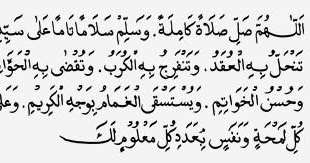 اَللّٰهُمَّ صَلِّ صَلَاةً كَامِلَةً . وَسَلِّمْ سَلَامًا تَامًّا عَلٰى
تَنْحَلُّ بِهِ الْعُقَدُ . وَتَنْفَرِجُ بِهِ الْكُرَبُ . وَتُقْضٰى بِهِ
وَحُسْنُ الْخَوَاتِمِ . وَيُسْتَسْقَى الْغَمَامُ بِوَجْهِهِ الْكَرِيْمِ .
كُلِّ لَمْحَةٍ وَنَفَسٍ بِعَدَدِ كُلِّ مَعْلُوْمٍ لَكَ